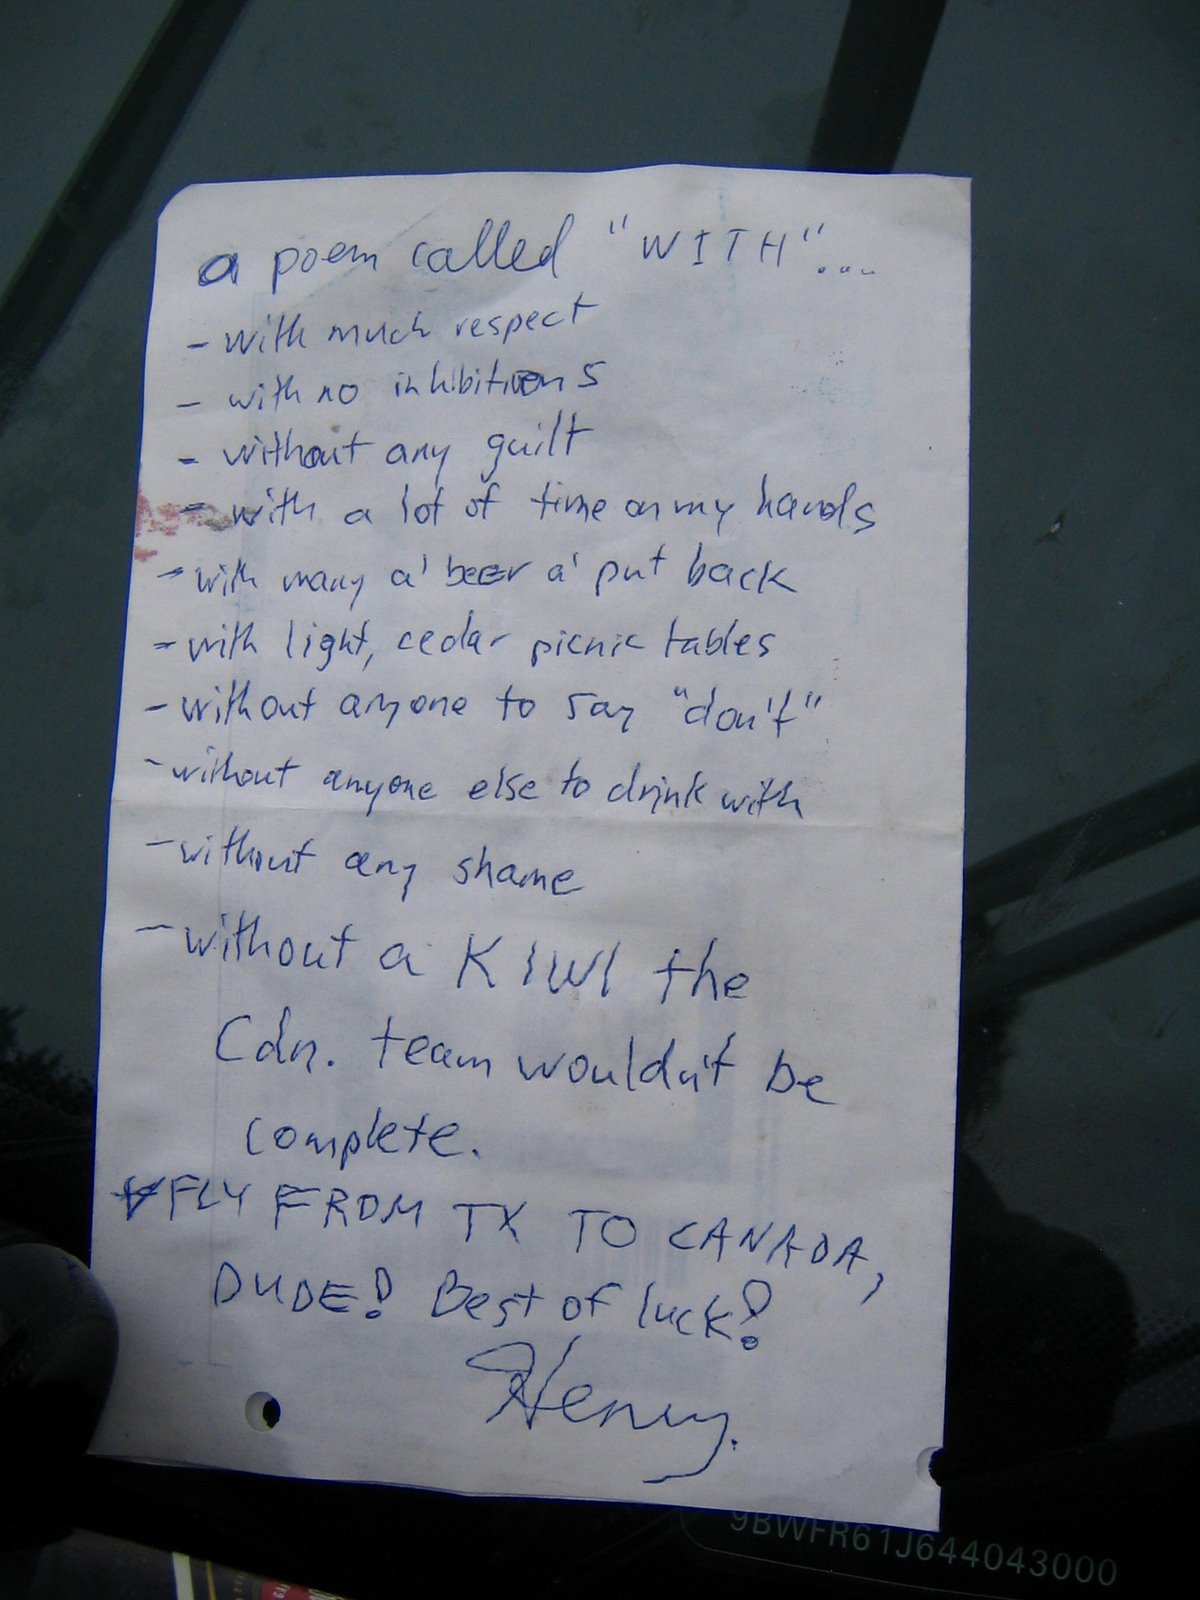 a poem called "WITH"....
- with much respect
- with no inhibitions
- without any guilt
- with a lot of time on my hands
- with many a' beer a' put back
- with light, cedar picnic tables
- without anyone to say "don't"
- without anyone else to drink with
- without any shame
- without a KIWI the
Cdn. team wouldn't be
complete.
FLY FROM TX TO CANADA,
DUDE! Best of luck!
Henry.
9BWFR61J644043000